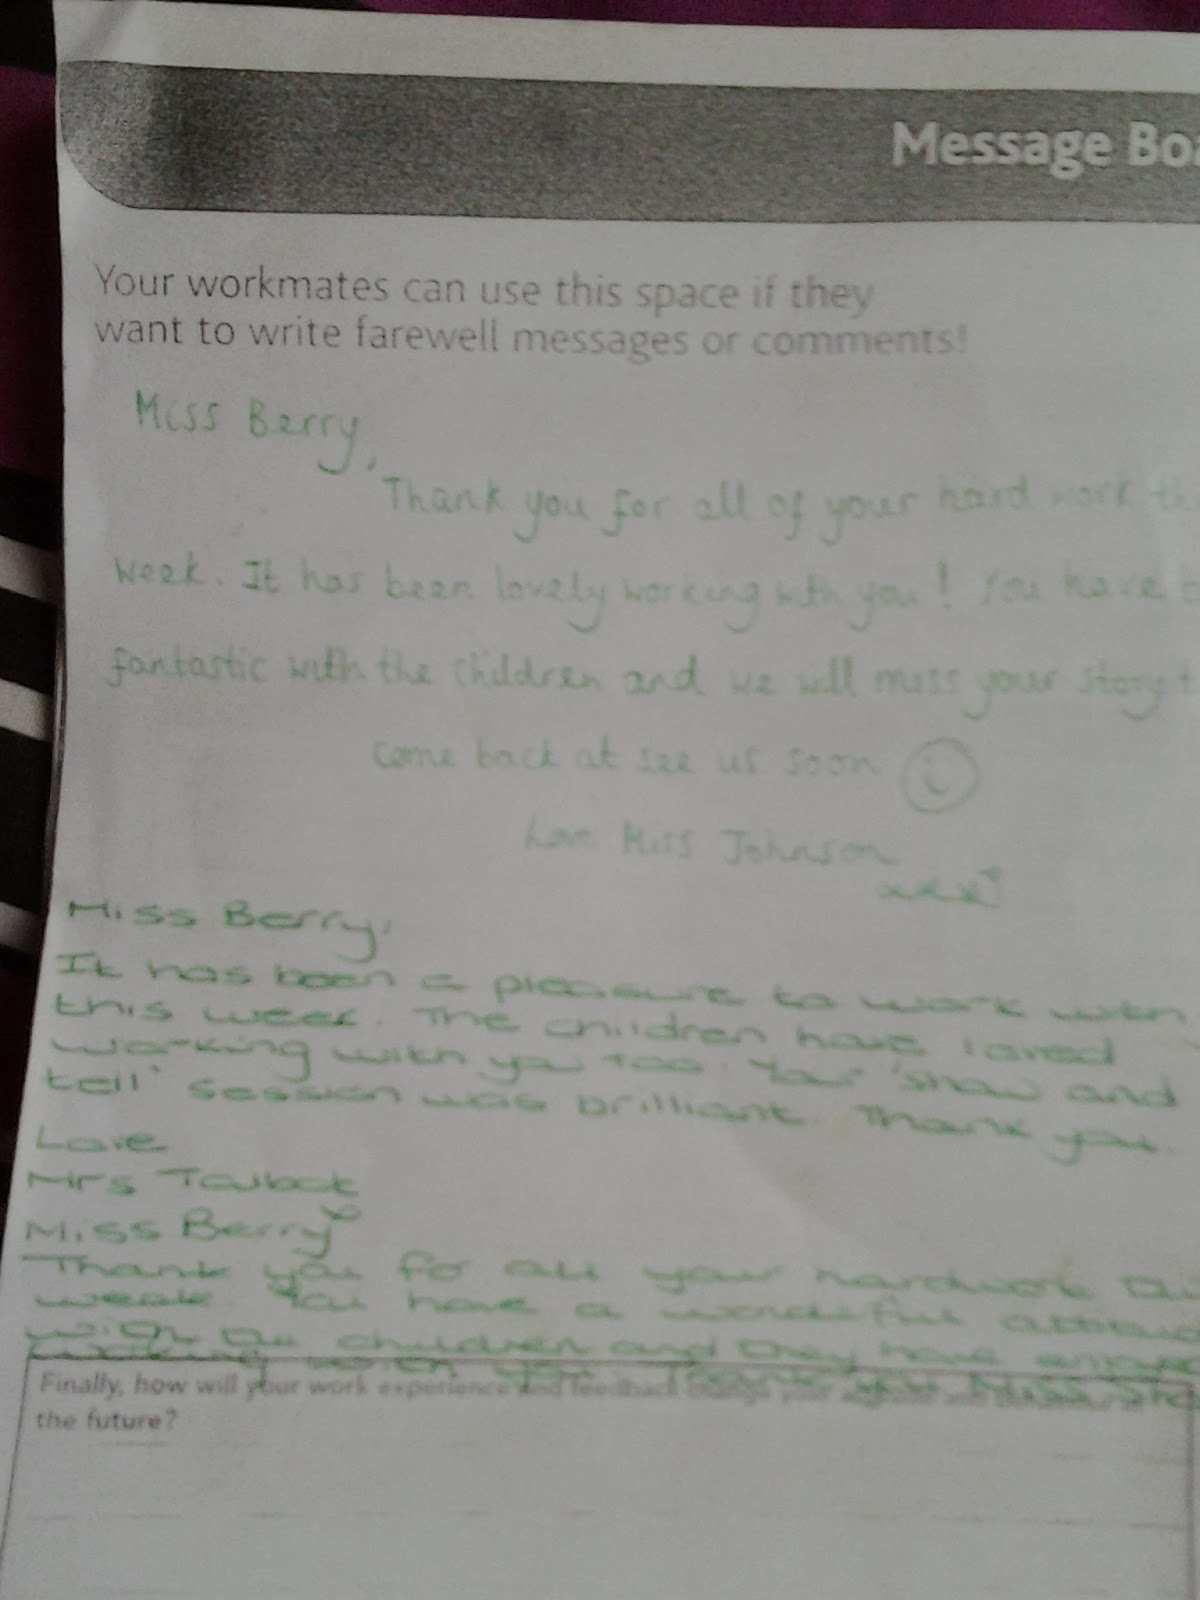 Message Boa
Your workmates can use this space if they
want to write farewell messages or comments!
Miss Berry,
Thank you for all of your hard work th
week. It has been lovely working with you! You have b
fantastic with the children and we will miss your story t
come back at see us soon
Love Miss Johnson
xxx
Miss Berry,
It has been a pleasure to work with
this week. The children have loved
working with you too. Your 'show and
tell' session was brilliant. Thank you.
Love
Mrs Talbot
x
Miss Berry
Thank you for all your hardwork
week. You have a wonderful
with the children and they have
with you. Thank you Miss
Finally, how will your work experience and feedback change your
the future?